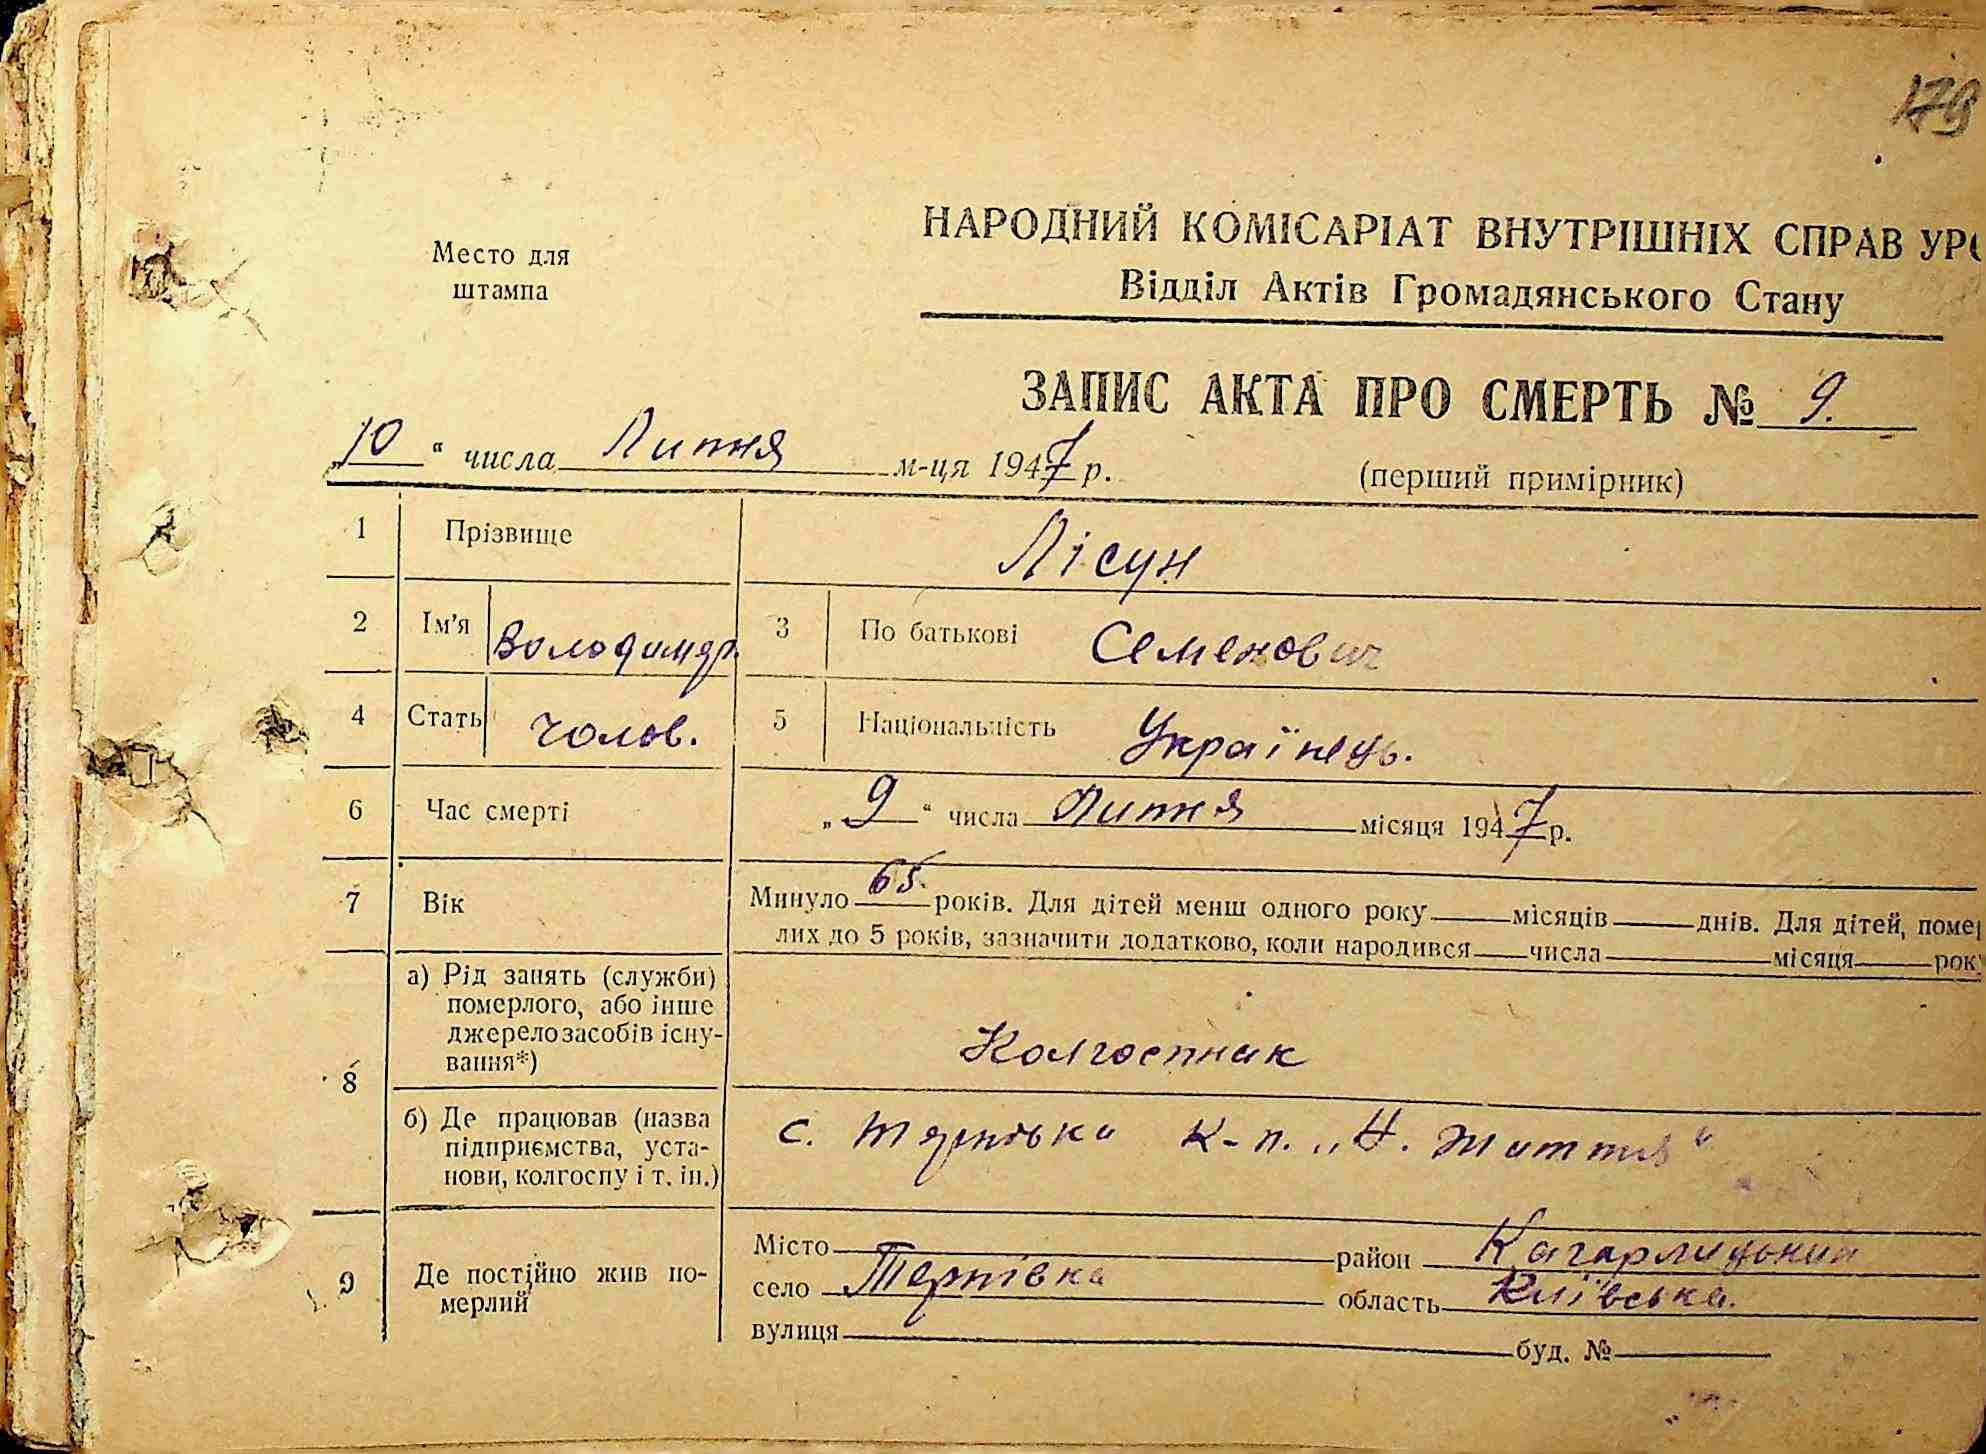 179
Место для
штампа
НАРОДНИЙ КОМІСАРІАТ ВНУТРІШНІХ СПРАВ УРС
Відділ Актів Громадянського Стану
ЗАПИС АКТА ПРО СМЕРТЬ № 9.
„10“ числа Липня м-ця 1947 р.
(перший примірник)
1 Прізвище Лісун
2 Ім'я Володимир. 3 По батькові Семенович
4 Стать чолов. 5 Національність Українець.
6 Час смерті „9“ числа Липня місяця 1947 р.
7 Вік Минуло 65 років. Для дітей менш одного року місяців днів. Для дітей, помер
лих до 5 років, зазначити додатково, коли народився числа місяця року
8 а) Рід занять (служби)
померлого, або інше
джерело засобів існу-
вання*)
Колгоспник
б) Де працював (назва
підприємства, уста-
нови, колгоспу і т. ін.)
с. К-п. „Н. Життя“
9 Де постійно жив по-
мерлий
Місто район Кагарлицький
село область Київська.
вулиця буд. №